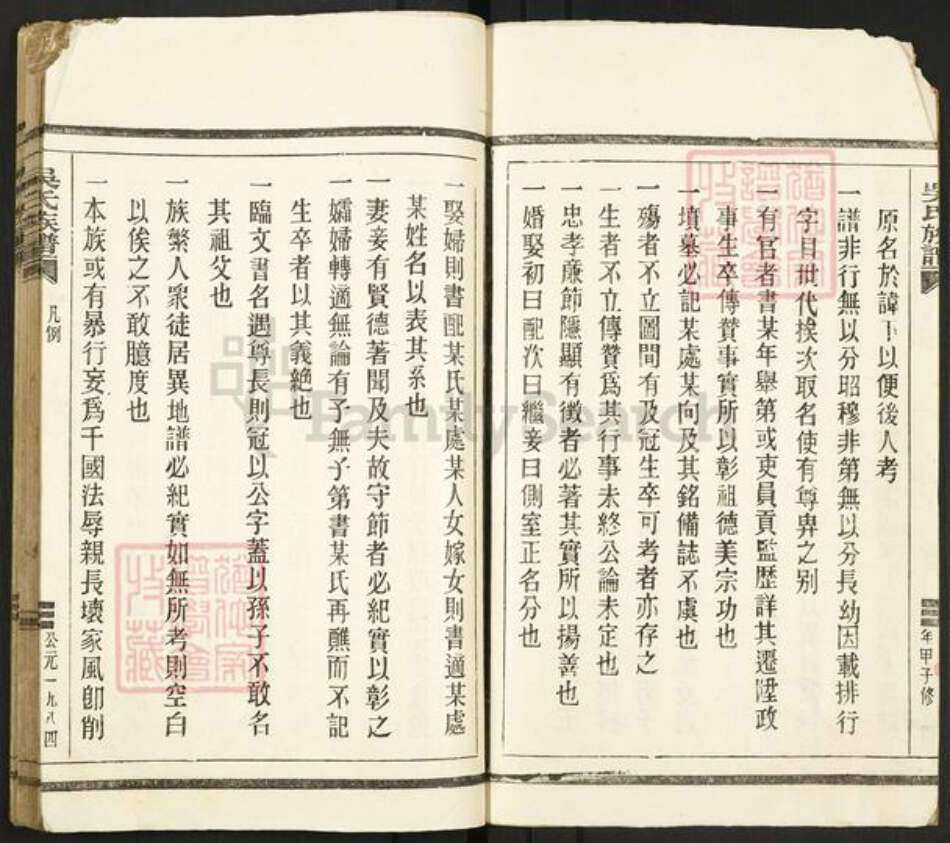 吳氏族譜
年甲子修
原名於諱下以便後人考
一譜非行無以分昭穆非第無以分長幼因載排行
字目世代挨次取名使有尊卑之别
一有官者書某年舉第或吏員貢監歷詳其遷陞政
事生卒傳贊事實所以彰祖德美宗功也
一墳墓必記某處某向及其銘備誌不虞也
一殤者不立圖間有及冠生卒可考者亦存之
一生者不立傳贊爲其行事未終公論未定也
一忠孝廉節隱顯有徵者必著其實所以揚善也
一婚娶初曰配次曰繼妾曰側室正名分也
一娶婦則書配某氏某處某人女嫁女則書適某處
某姓名以表其系也
一妻妾有賢德著聞及夫故守節者必紀實以彰之
一孀婦轉適無論有子無子第書某氏再醮而不記
生卒者以其義絶也
一臨文書名遇尊長則冠以公字蓋以孫子不敢名
其祖父也
一族繁人衆徒居異地譜必紀實如無所考則空白
以俟之不敢臆度也
一本族或有暴行妄爲千國法辱親長壞家風卽削
吳氏族譜
凡例
公元一九八四
FamilySearch